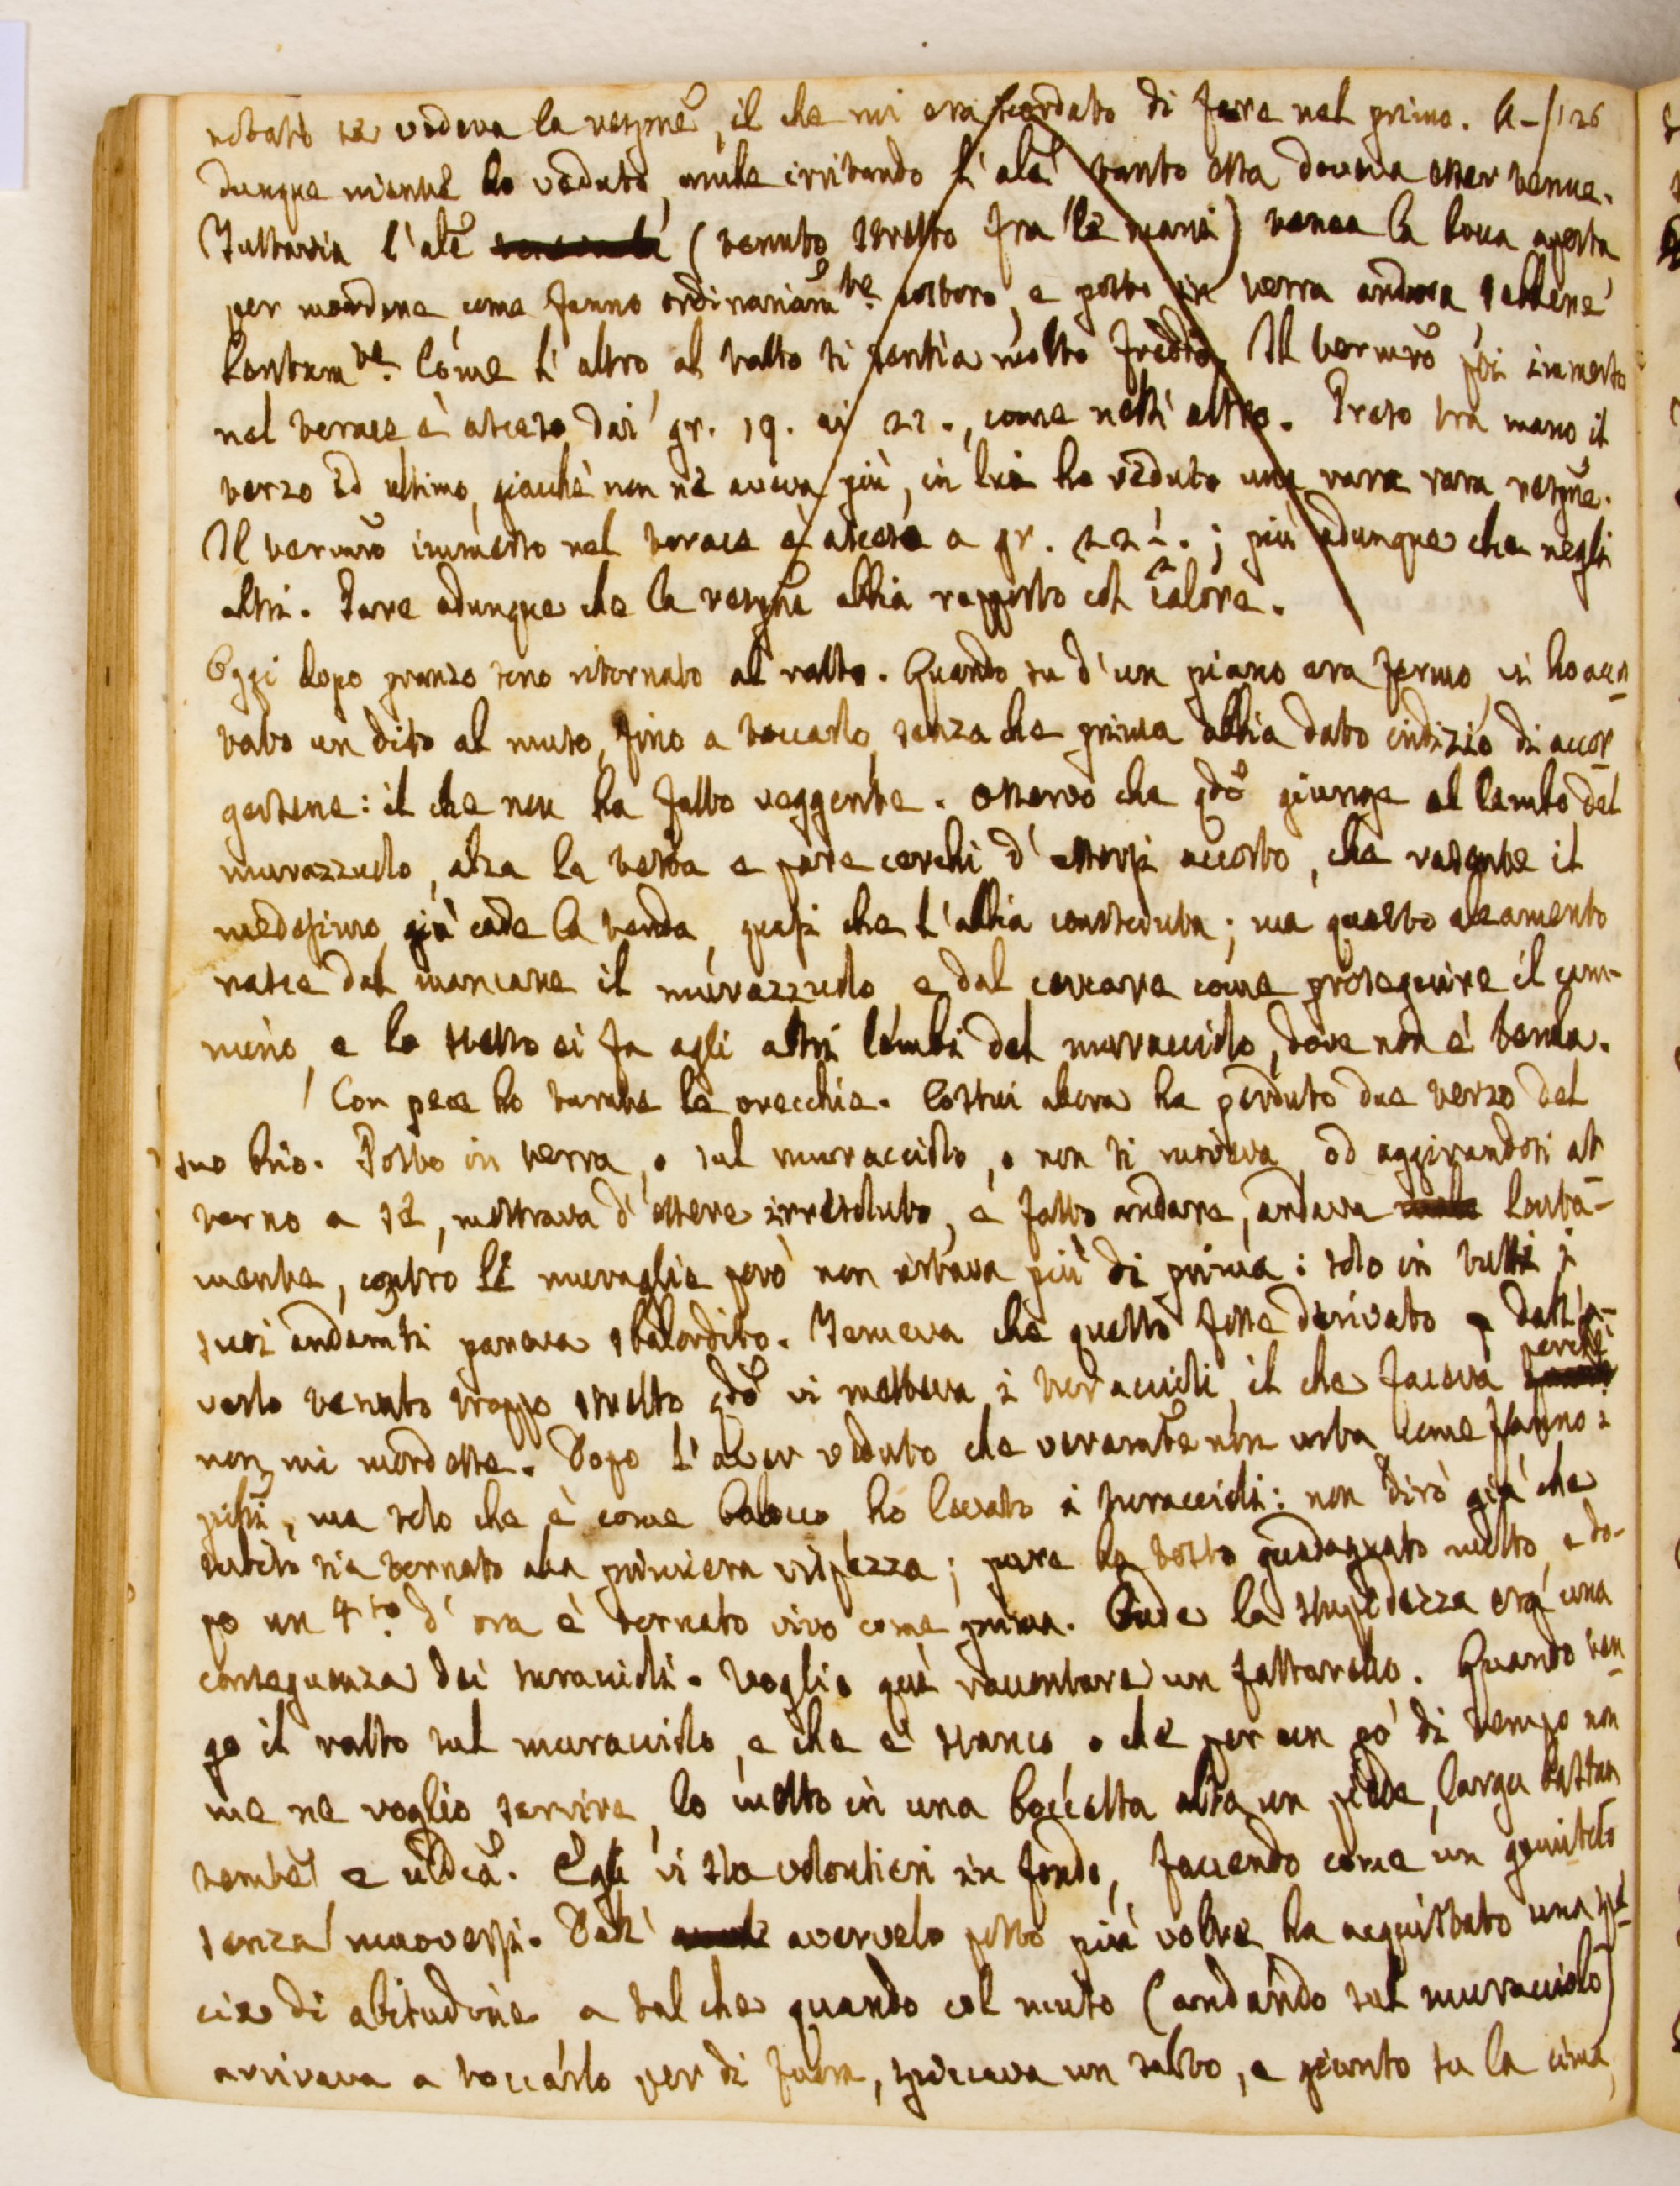 notato se vedeva la respne, il che mi era scordato di fare nel primo. A- /126
dunque niente ho veduto, anche irritando l'ale tanto essa doveva esser tenue.
Tuttavia l'ale (tenuto stretto fra le mani) tenea la bocca aperta
per mordere come fanno ordinariamte. costoro, e posto in terra andava, sebbene
lentamte. Come l'altro al tatto si sentia molto freddo. Il termro poi immerso
nel torace è asceso dai gr. 19. ai 22., come nell'altro. Preso tra mano il
terzo ed ultimo, giacchè non ne aveva più, in lui ho veduto una rara rara respne.
Il termro immerso nel torace è asceso a gr. 22 1/2.; più adunque che negli
altri. Pare adunque che la respne abbia rapporto col calore.
Oggi dopo pranzo sono ritornato al ratto. Quando su d'un piano era fermo, vi ho acco
tato un dito al muso, fino a toccarlo, senza che prima abbia dato indizio di accor
gersene: il che non ha fatto veggente. Osservo che qdo giunge al lembo del
murazzuolo, alza la testa e pare cerchi d'essersi accorto, che radente il
medesimo giù cade la tenda, quasi che l'abbia conosciuta; ma questo alzamento
nasce dal mancare il murazzuolo, e dal cercare come proseguire il cam-
mino, e lo stesso ei fa agli altri lembi del muracciolo, dove non è tenda.
Con pece ho turate le orecchie. Costui allora ha perduto due terzo del
suo brio. Posto in terra, o sul muracciolo, o non si moveva, od aggirandosi at
torno a se, mostrava d'essere irresoluto, e fatto andare, andava lenta-
mente, contro le muraglie però non urtava più di prima: solo in tutti i
suoi andamti pareva sbalordito. Temeva che questo fosse derivato p dall'a-
verlo tenuto troppo stretto qdo vi metteva i turaccioli, il che faceva perchè
non mi mordesse. Dopo l'aver veduto che veramte non urta come fanno i
ma solo che è come balocco, ho levato i turaccioli: non dirò già che
subito sia tornato alla primiera vispezza; pure ha tosto guadagnato molto, e do-
po un 4to. d'ora è tornato vivo come prima. Onde la stupidezza era una
conseguenza dei turaccioli. Voglio quì raccontare un fattarello. Quando ten
go il ratto sul muracciolo, e che è stanco, o che per un pò di tempo non
me ne voglio servire, lo metto in una boccetta alta un piede, larga bastan
temte e Egli vi sta volontieri in fondo, facendo come un gomitolo
senza muoversi. Dall' avervelo posto più volte ha acquistato una spe
cie di abitudine a tal che quando col muso (andando sul muracciolo)
arrivava a toccarlo per di fuora, spiccava un salto, e giunto su la cima,